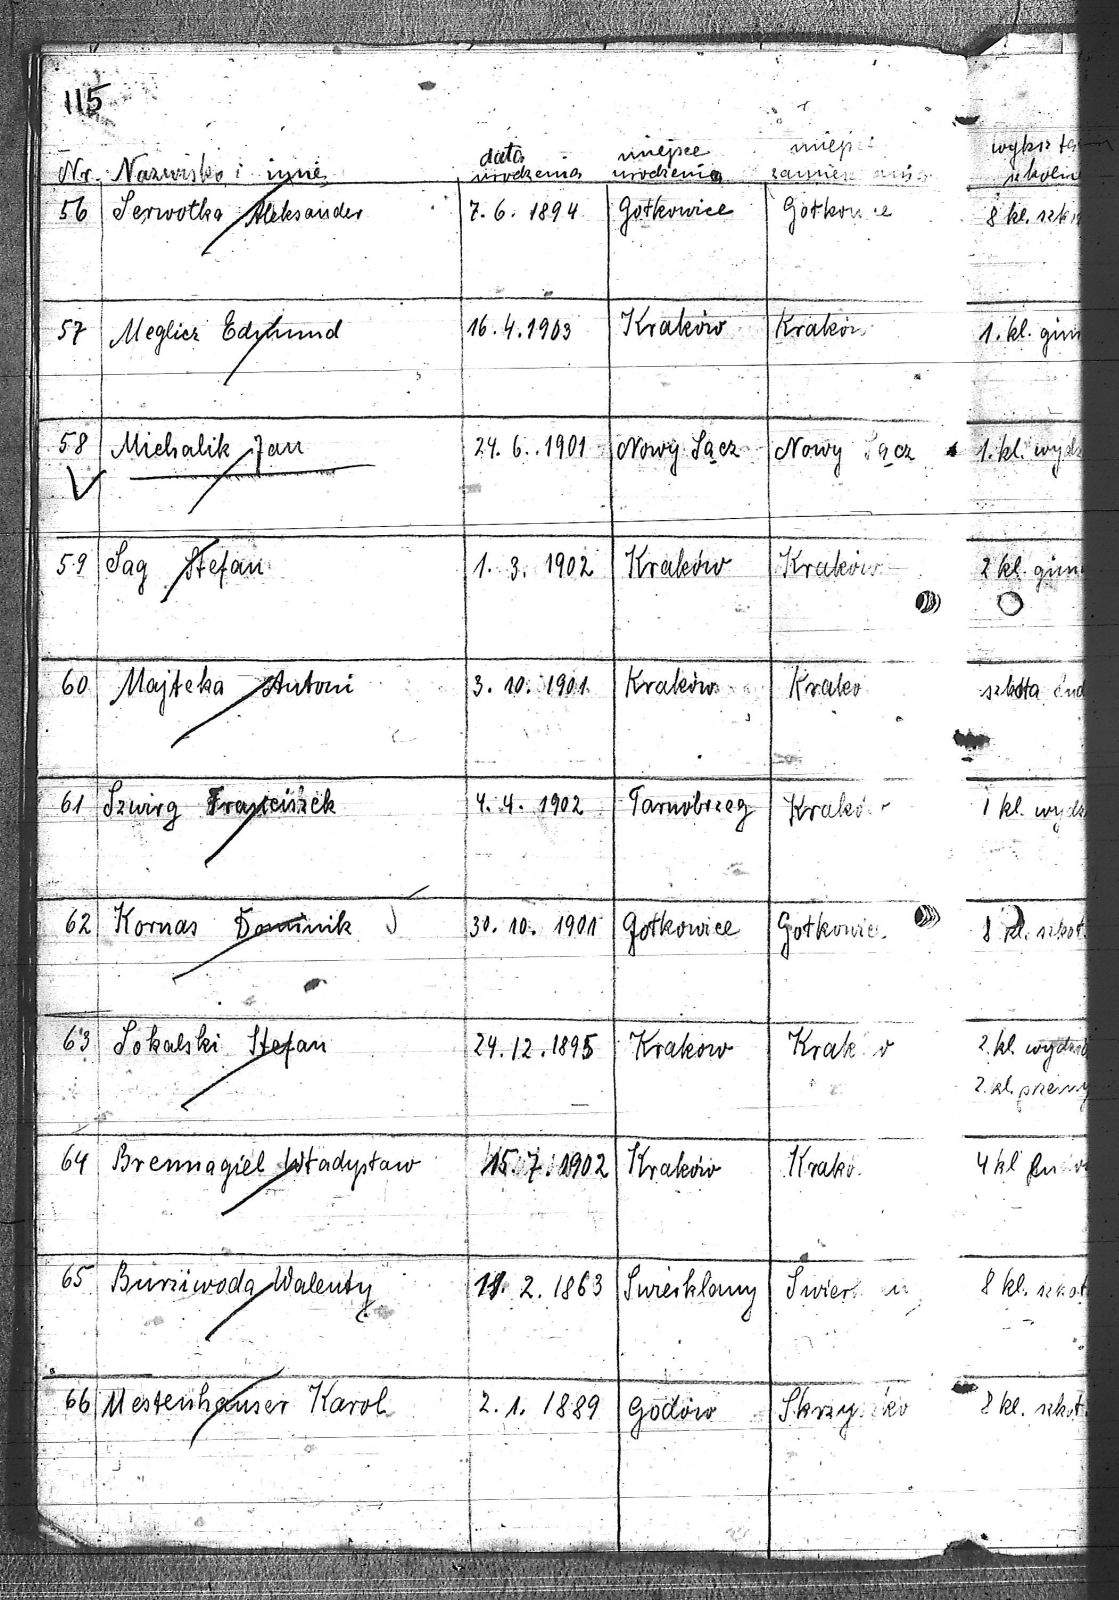 115
Nr. Nazwisko i imię data urodzenia miejsce urodzenia
56 Serwotka Aleksander 7. 6. 1894 Gołkowice Gołkowice 8 kl.
57 Meglicz Edmund 16. 4. 1903 Kraków Kraków 1. kl.
58 Michalik Jan 24. 6. 1901 Nowy Sącz Nowy Sącz 1. kl.
59 Sag Stefan 1. 3. 1902 Kraków Kraków 2 kl.
60 Majteka Antoni 3. 10. 1901 Kraków Krako
61 Szwirg Franciszek 4. 4. 1902 Tarnobrzeg Kraków 1 kl.
62 Kornas Dominik 30. 10. 1901 Gołkowice Gołkowic. 8 kl. szkoł.
63 Sokalski Stefan 24. 12. 1895 Krakow Krak w 2 kl.
2. kl.
64 Brennagiel Władysław 15. 7. 1902 Kraków Krako. 4 kl
65 Walenty 11. 2. 1863 8 kl. szkoł
66 Mestenhauser Karol 2. 1. 1889 Godów 8 kl. szkoł.